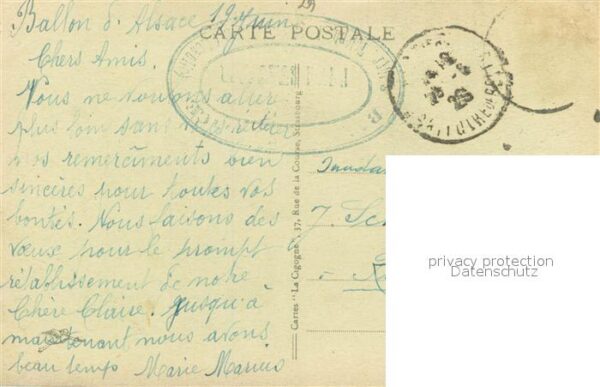 Ballon d'Alsace 19 Juin
29
CARTE POSTALE
Chers Amis.
Nous ne voulons aller
plus loin sans vous réitérer
nos remercîments bien
sincères pour toutes vos
bontés. Nous faisons des
vœux pour le prompt
rétablissement de notre
Chère Claire. Jusqu'à
maintenant nous avons
beau temps Marie Marius
Cartes "La Cigogne", 37, Rue de la Course, Strasbourg
privacy protection
Datenschutz